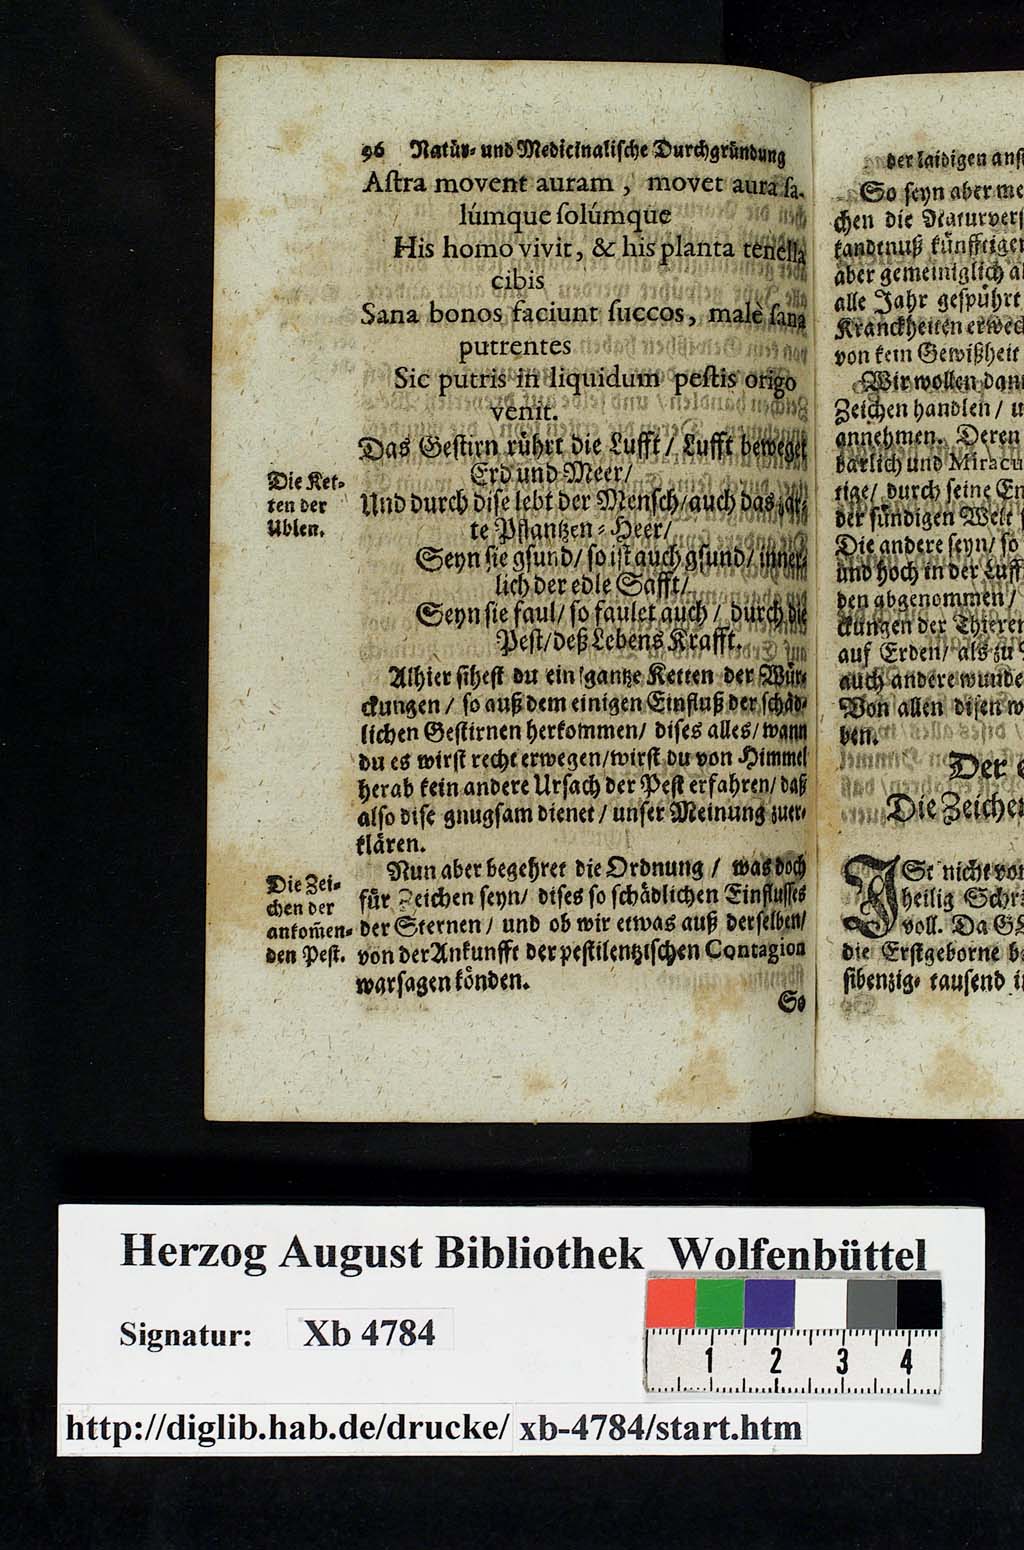 96 Natür- und Medicinalische Durchgründung
Aſtra movent auram, movet aura ſa-
lúmque ſolúmque
His homo vivit, & his planta tenella
cibis
Sana bonos faciunt ſuccos, malè ſana
putrentes
Sic putris in liquidum peſtis origo
venit.
Das Geſtirn rührt die Lufft / Lufft beweget
Erd und Meer /
Und durch diſe lebt der Menſch / auch das zar-
te Pflantzen-Heer /
Seyn ſie gſund / ſo iſt auch gſund / inner-
lich der edle Safft /
Seyn ſie faul / ſo faulet auch / durch die
Peſt / deß Lebens Krafft.
Die Ket-
ten der
Ublen.
Alhier siheſt du ein gantze Ketten der Wür-
ckungen / ſo auß dem einigen Einfluß der ſchäd-
lichen Geſtirnen herkommen / diſes alles / wann
du es wirſt recht erwegen / wirſt du von Himmel
herab kein andere Urſach der Peſt erfahren / daß
alſo diſe gnugſam dienet / unſer Meinung zuer-
klären.
Nun aber begehret die Ordnung / was doch
für Zeichen ſeyn / diſes ſo ſchädlichen Einfluſſes
der Sternen / und ob wir etwas auß derſelben /
von der Ankunfft der peſtilentziſchen Contagion
warſagen könden.
Die Zei-
chen der
ankom̄en-
den Peſt.
So
der laidigen anſt
So ſeyn aber me
chen die Naturverſ
kandtnuß künfftigen
aber gemeiniglich al
alle Jahr geſpührt
Kranckheiten erweck
von kein Gewißheit
Wir wollen dann
Zeichen handlen / u
annehmen. Deren
barlich und Miracu
tige / durch ſeine En
der ſündigen Welt ſ
Die andere ſeyn / ſo
und hoch in der Luff
den abgenommen /
ckungen der Thieren
auf Erden / als zu
auch andere wunde
Von allen diſen w
ben.
Der
Die Zeichen
ISt nicht von
heilig Schri
voll. Da
die Erſtgeborne be
ſibenzig-tauſend in
Herzog August Bibliothek Wolfenbüttel
Signatur: Xb 4784
1 2 3 4
http://diglib.hab.de/drucke/ xb-4784/start.htm